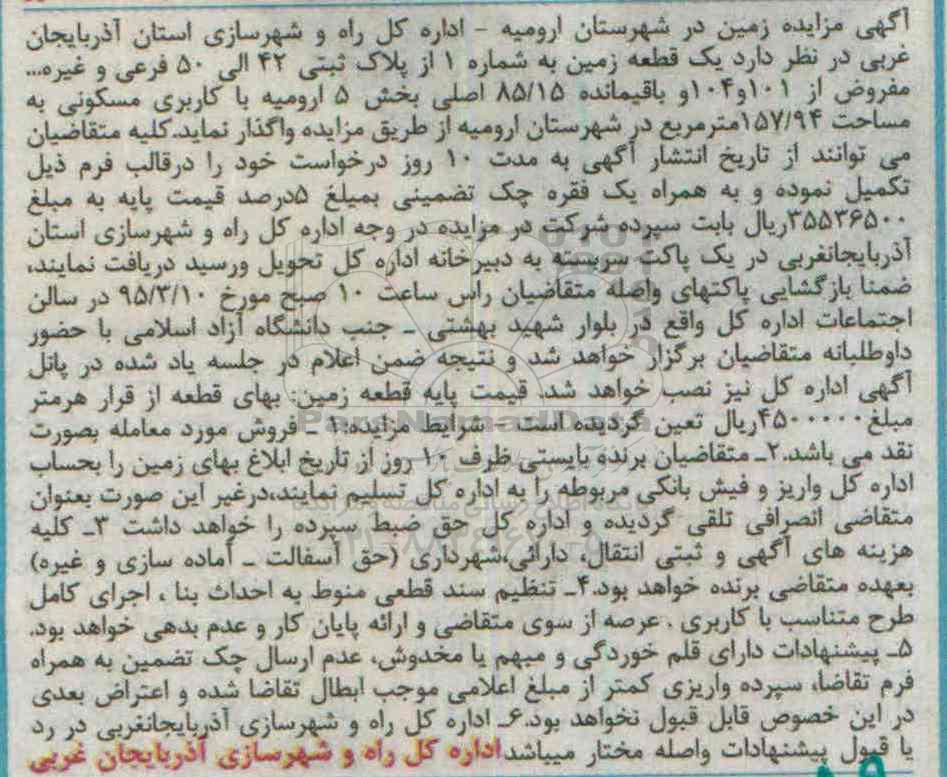 آگهی مزایده زمین در شهرستان ارومیه - اداره کل راه و شهرسازی استان آذربایجان
غربی در نظر دارد یک قطعه زمین به شماره ۱ از پلاک ثبتی ۴۲ الی ۵۰ فرعی و غیره...
مفروض از ۱۰۱و۱۰۴و باقیمانده ۸۵/۱۵ اصلی بخش ۵ ارومیه با کاربری مسکونی به
مساحت ۱۵۷/۹۴مترمربع در شهرستان ارومیه از طریق مزایده واگذار نماید.کلیه متقاضیان
می توانند از تاریخ انتشار آگهی به مدت ۱۰ روز درخواست خود را درقالب فرم ذیل
تکمیل نموده و به همراه یک فقره چک تضمینی بمبلغ ۵درصد قیمت پایه به مبلغ
۳۵۵۳۶۵۰۰ریال بابت سپرده شرکت در مزایده در وجه اداره کل راه و شهرسازی استان
آذربایجانغربی در یک پاکت سربسته به دبیرخانه اداره کل تحویل ورسید دریافت نمایند،
ضمنا بازگشایی پاکتهای واصله متقاضیان راس ساعت ۱۰ صبح مورخ ۹۵/۳/۱۰ در سالن
اجتماعات اداره کل واقع در بلوار شهید بهشتی ـ جنب دانشگاه آزاد اسلامی با حضور
داوطلبانه متقاضیان برگزار خواهد شد و نتیجه ضمن اعلام در جلسه یاد شده در پانل
آگهی اداره کل نیز نصب خواهد شد. قیمت پایه قطعه زمین: بهای قطعه از قرار هرمتر
مبلغ۴۵۰۰۰۰۰ریال تعین گردیده است - شرایط مزایده:۱ ـ فروش مورد معامله بصورت
نقد می باشد.۲ـ متقاضیان برنده بایستی ظرف ۱۰ روز از تاریخ ابلاغ بهای زمین را بحساب
اداره کل واریز و فیش بانکی مربوطه را به اداره کل تسلیم نمایند،درغیر این صورت بعنوان
متقاضی انصرافی تلقی گردیده و اداره کل حق ضبط سپرده را خواهد داشت ۳ـ کلیه
هزینه های آگهی و ثبتی انتقال، دارائی،شهرداری (حق آسفالت ـ آماده سازی و غیره)
بعهده متقاضی برنده خواهد بود.۴ـ تنظیم سند قطعی منوط به احداث بنا ، اجرای کامل
طرح متناسب با کاربری . عرصه از سوی متقاضی و ارائه پایان کار و عدم بدهی خواهد بود.
۵ـ پیشنهادات دارای قلم خوردگی و مبهم یا مخدوش، عدم ارسال چک تضمین به همراه
فرم تقاضا، سپرده واریزی کمتر از مبلغ اعلامی موجب ابطال تقاضا شده و اعتراض بعدی
در این خصوص قابل قبول نخواهد بود.۶ـ اداره کل راه و شهرسازی آذربایجانغربی در رد
یا قبول پیشنهادات واصله مختار میباشد اداره کل راه و شهرسازی آذربایجان غربی
ParsNamadData